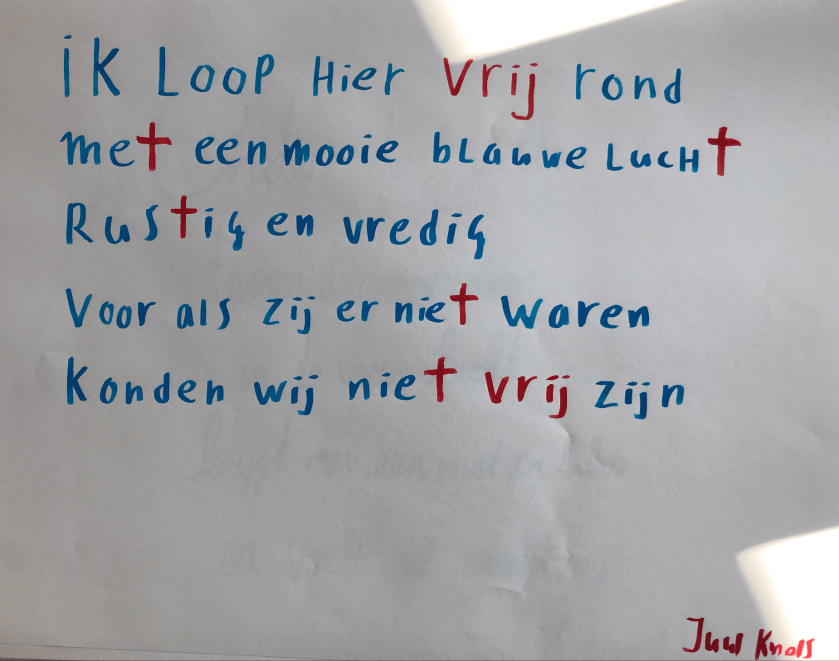 iK LOOP Hier vrij rond
met een mooie blauwe LucHt
Rustig en vredig
Voor als zij er niet waren
Konden wij niet vrij zijn
Juul Knols